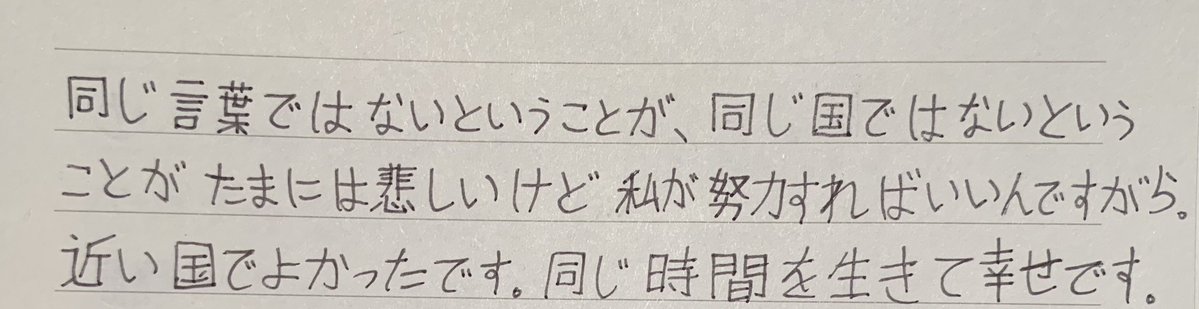 同じ言葉ではないということが、同じ国ではないという
ことが たまには悲しいけど 私が努力すればいいんですがら。
近い国でよかったです。同じ時間を生きて幸せです.